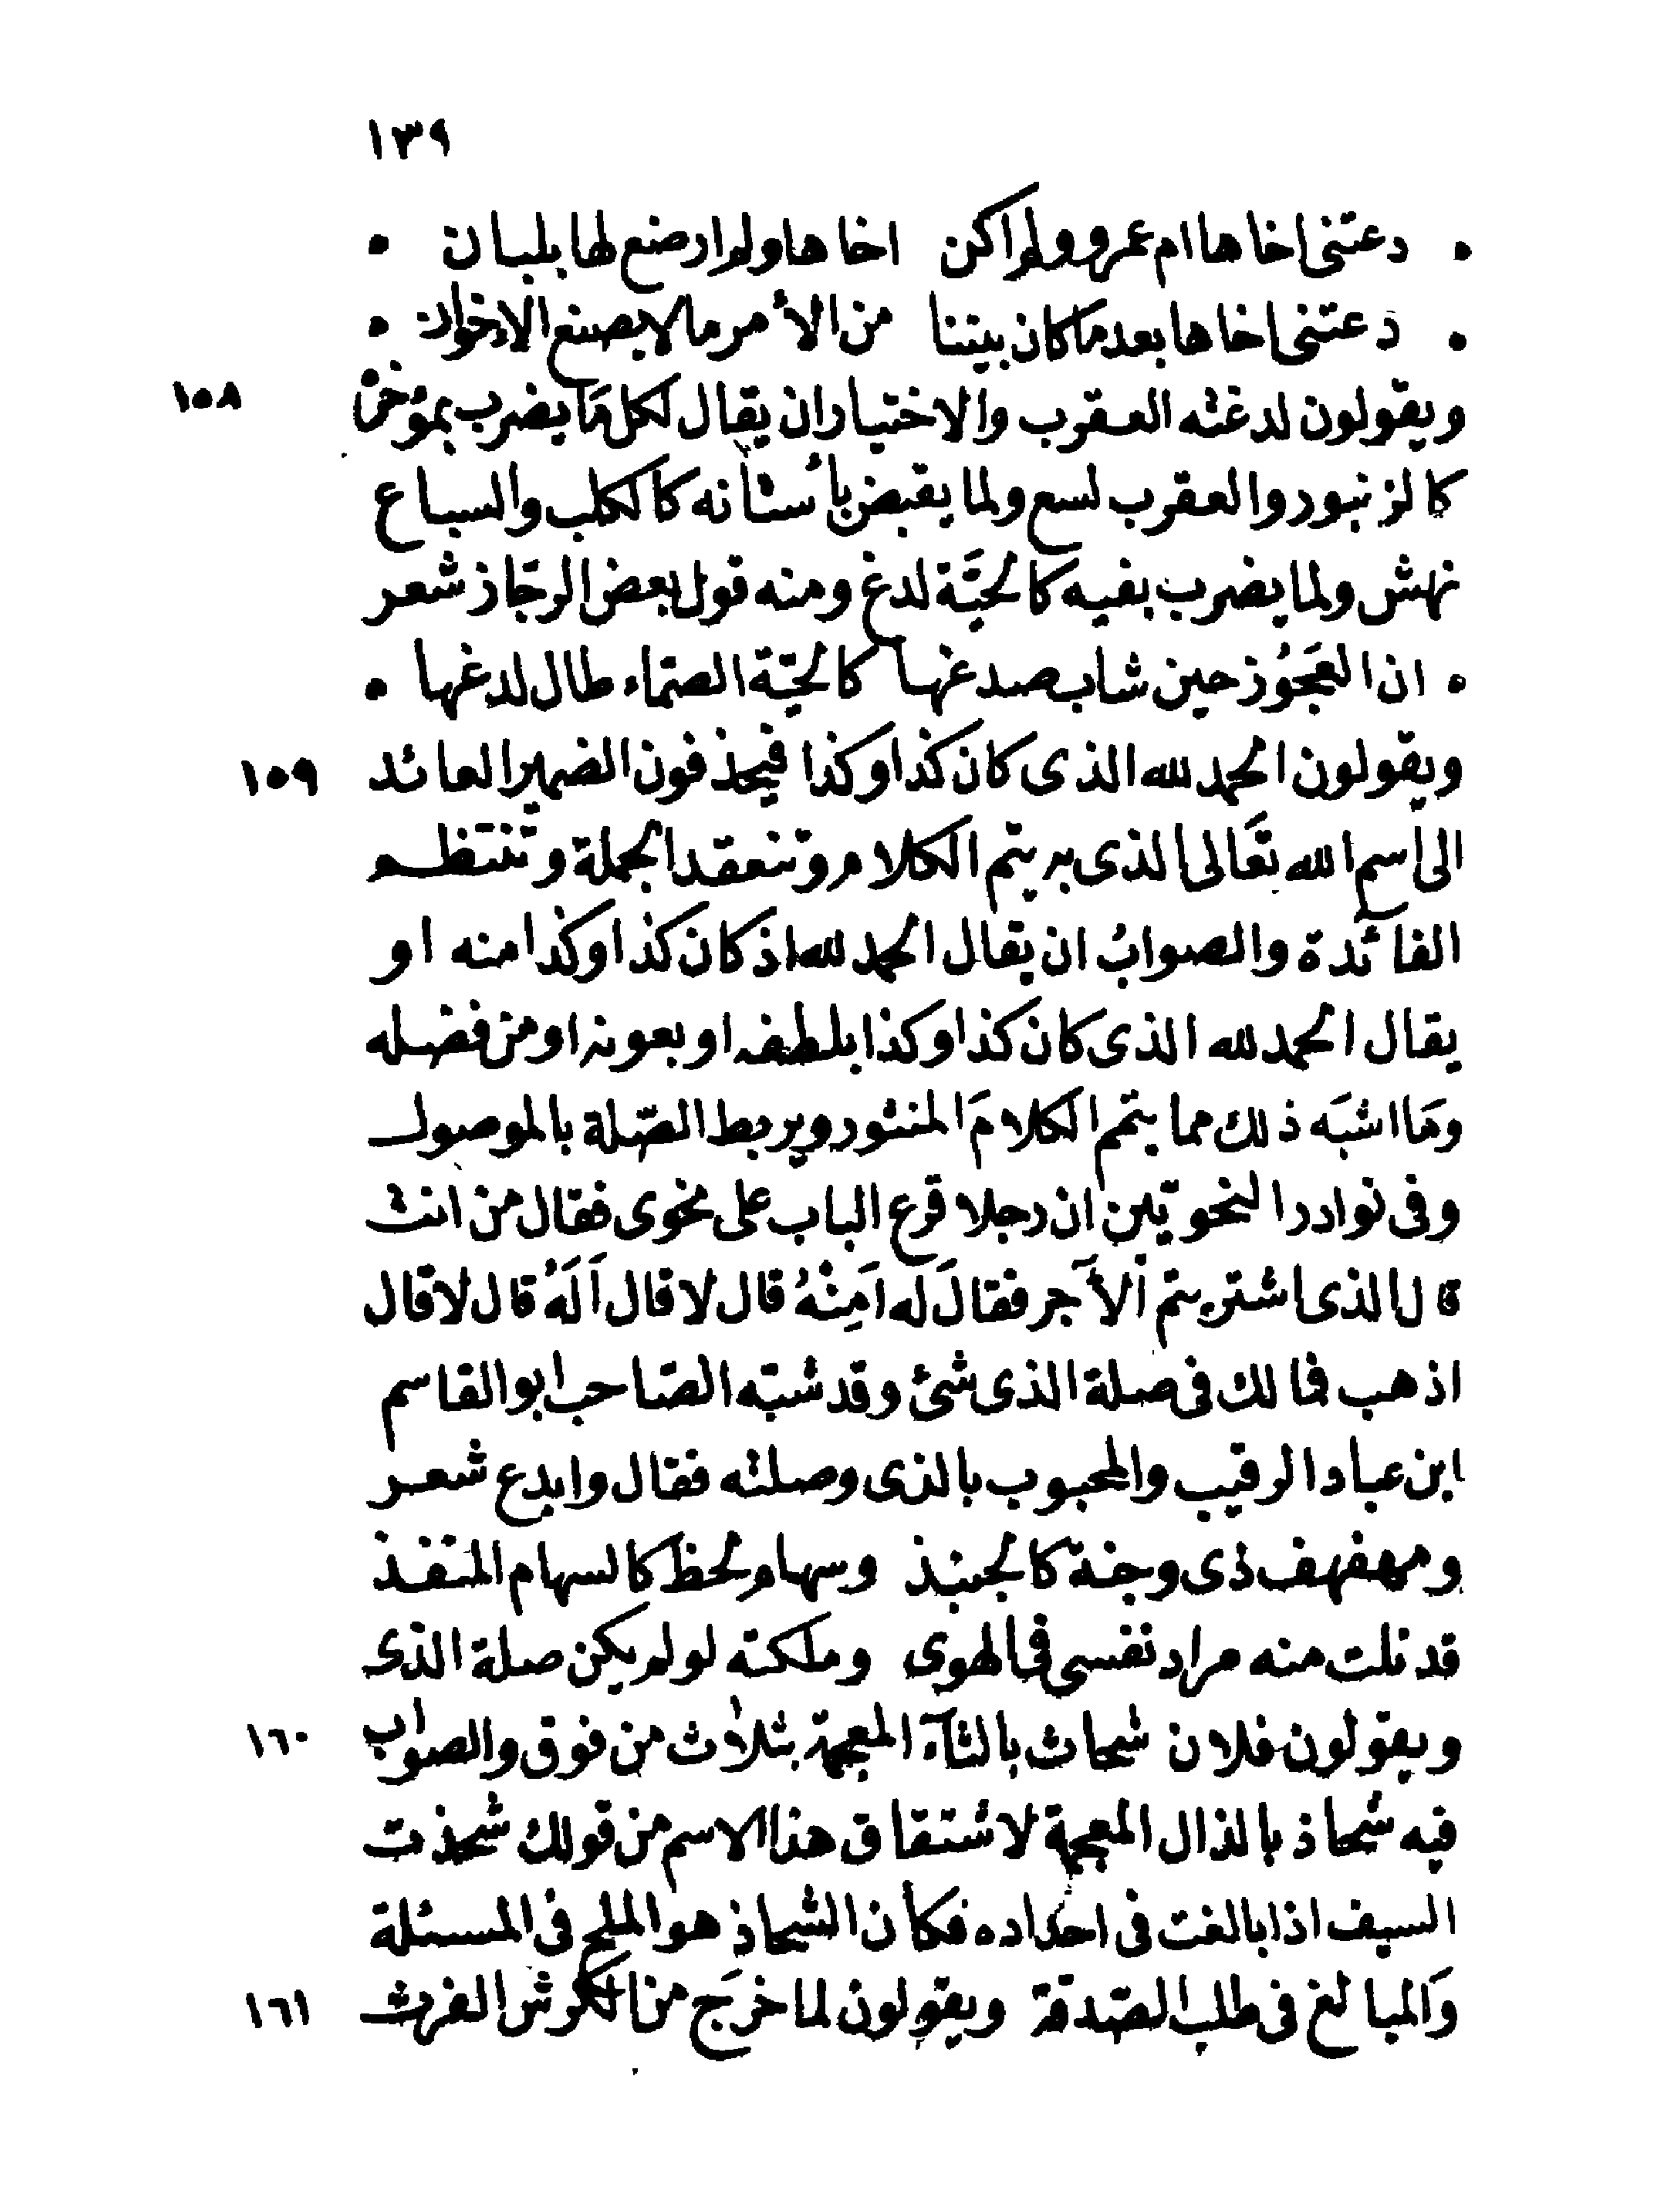 ١٣٩
• دعتنى اخاها ام عمرو ولم اكن اخاها ولم ارضع لها بلبان •
• دعتنى اخاها بعد ما كان بيننا من الأمر ما لا يصنع الاخوان •
ويقولون لدغته العقرب والاختيار ان يقال لكل مَا يضرب بمؤخره ١٥٨
كالزنبور والعقرب لسع ولما يقبض بأسنانه كالكلب والسباع
نهش ولما يضرب بفيه كالحيَّة لدغ ومنه قول بعض الرجّاز شعر
• ان العَجَوُز حين شاب صدغها كالحيّة الصمّاء طال لدغها •
ويقولون الحمد لله الذى كان كذا وكذا فيحذفون الضمير العائد ١٥٩
الى اسم الله تعَالى الذى به يتم الكلام وتنعقد الجملة وتنتظم
الفائدة والصوابُ ان يقال الحمد لله اذ كان كذا وكذا منه او
يقال الحمد لله الذى كان كذا وكذا بلطفه او بعونه او من فضله
ومَا اشبَه ذلك مما يتم الكلامَ المنثور ويربط الصّلة بالموصول
وفى نوادر النحويّين ان رجلا قرع الباب على نحوى فقال من انت
قال الذى اشتريتم اَلآجر فقالَ له اَمِنْهُ قال لا قال اَلَهُ قال لا قال
اذهب فما لك فى صلة الذى شئ وقد شبّه الصّاحب ابو القاسم
ابن عباد الرقيب والمحبوب بالذى وصلته فقال وابدع شعر
ومهفهف ذى وجنة كالجنبذ وسهام لحظ كالسهام المنفذ
قد نلت منه مراد نفسى فى الهوى وملكته لو لم يكن صلة الذى
ويقولون فلان شحاث بالثآء المعجمة بثلاث من فوق والصواب ١٦٠
فيه شحاذ بالذال المعجمة لاشتقاق هذا الاسم من قولك شحذت
السيف اذا بالغت فى احداده فكأن الشحاذ هو الملح فى المسئلة
وَالمبالغ فى طلب الصّدقة ويقولون لما خرَج من الكرش الفرث ١٦١